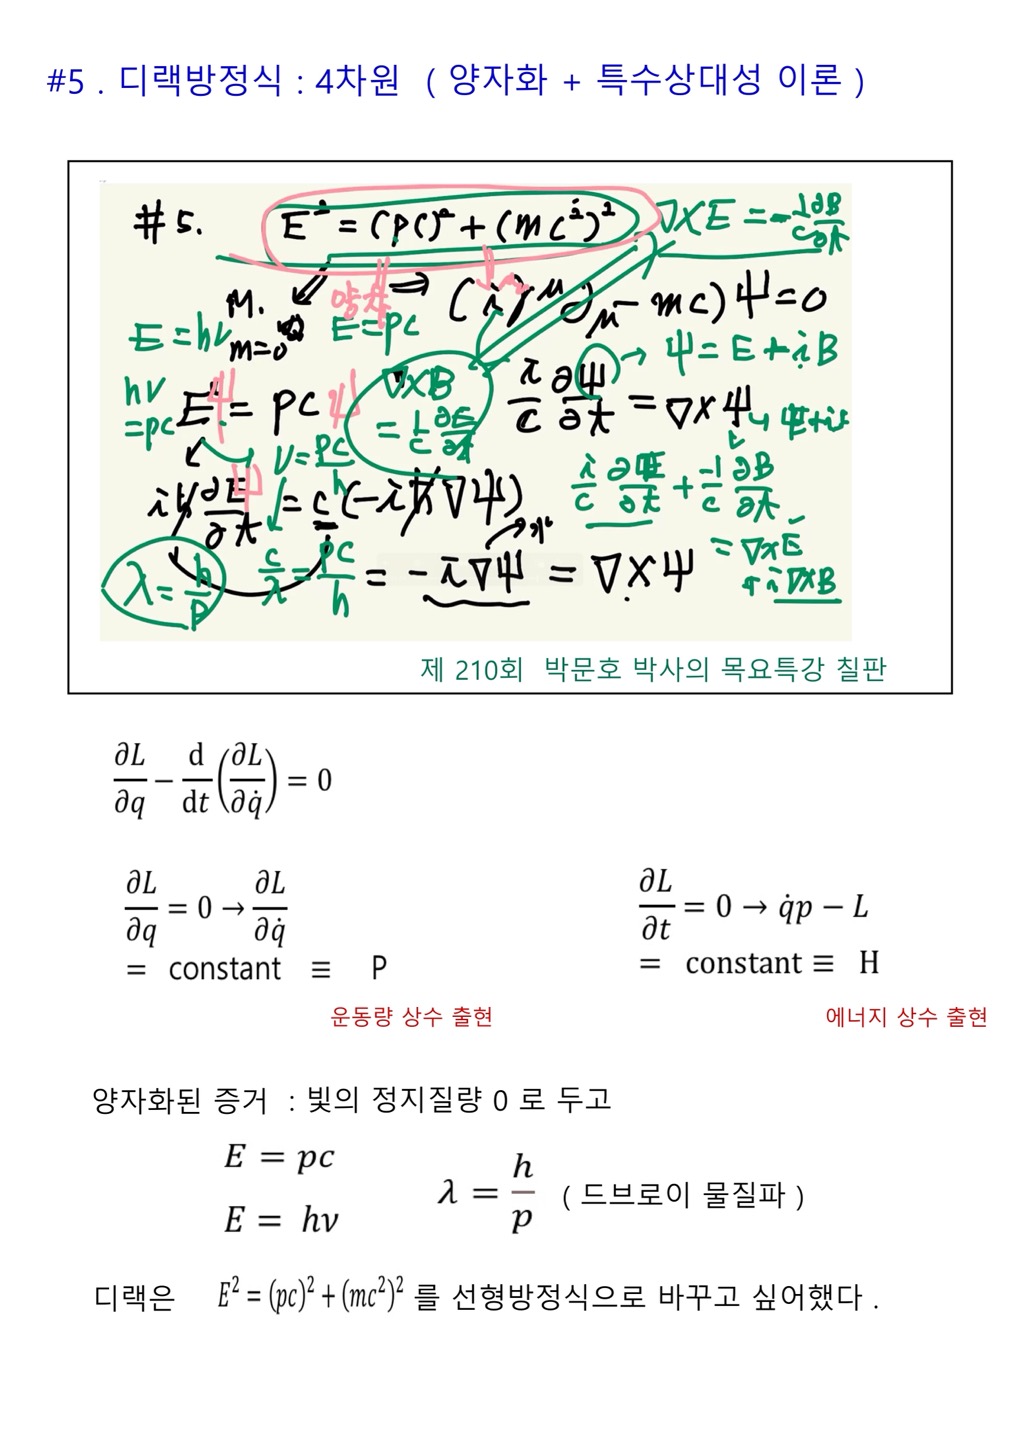 #5 . 디랙방정식 : 4차원 ( 양자화 + 특수상대성 이론 )
#5. E² = (pc)² + (mc²)² ∇×E = -1/c ∂B/∂t
M. 양자 ⇒ (iγ^μ ∂_μ - mc)ψ = 0
E = hν m=0 E = pc → ψ = E + iB
hν = pc Eψ = pcψ ∇×B = 1/c ∂E/∂t i/c ∂ψ/∂t = ∇×ψ
ν = pc/h i/c ∂E/∂t + -1/c ∂B/∂t
iħ ∂ψ/∂t = c(-iħ∇ψ) = ∇×E + i∇×B
λ = h/p c/λ = pc/h = -i∇ψ = ∇×ψ
제 210회 박문호 박사의 목요특강 칠판
∂L/∂q − d/dt(∂L/∂q̇) = 0
∂L/∂q = 0 → ∂L/∂q̇
= constant ≡ P
운동량 상수 출현
∂L/∂t = 0 → q̇p − L
= constant ≡ H
에너지 상수 출현
양자화된 증거 : 빛의 정지질량 0 로 두고
E = pc
E = hν
λ = h/p ( 드브로이 물질파 )
디랙은 E² = (pc)² + (mc²)² 를 선형방정식으로 바꾸고 싶어했다 .